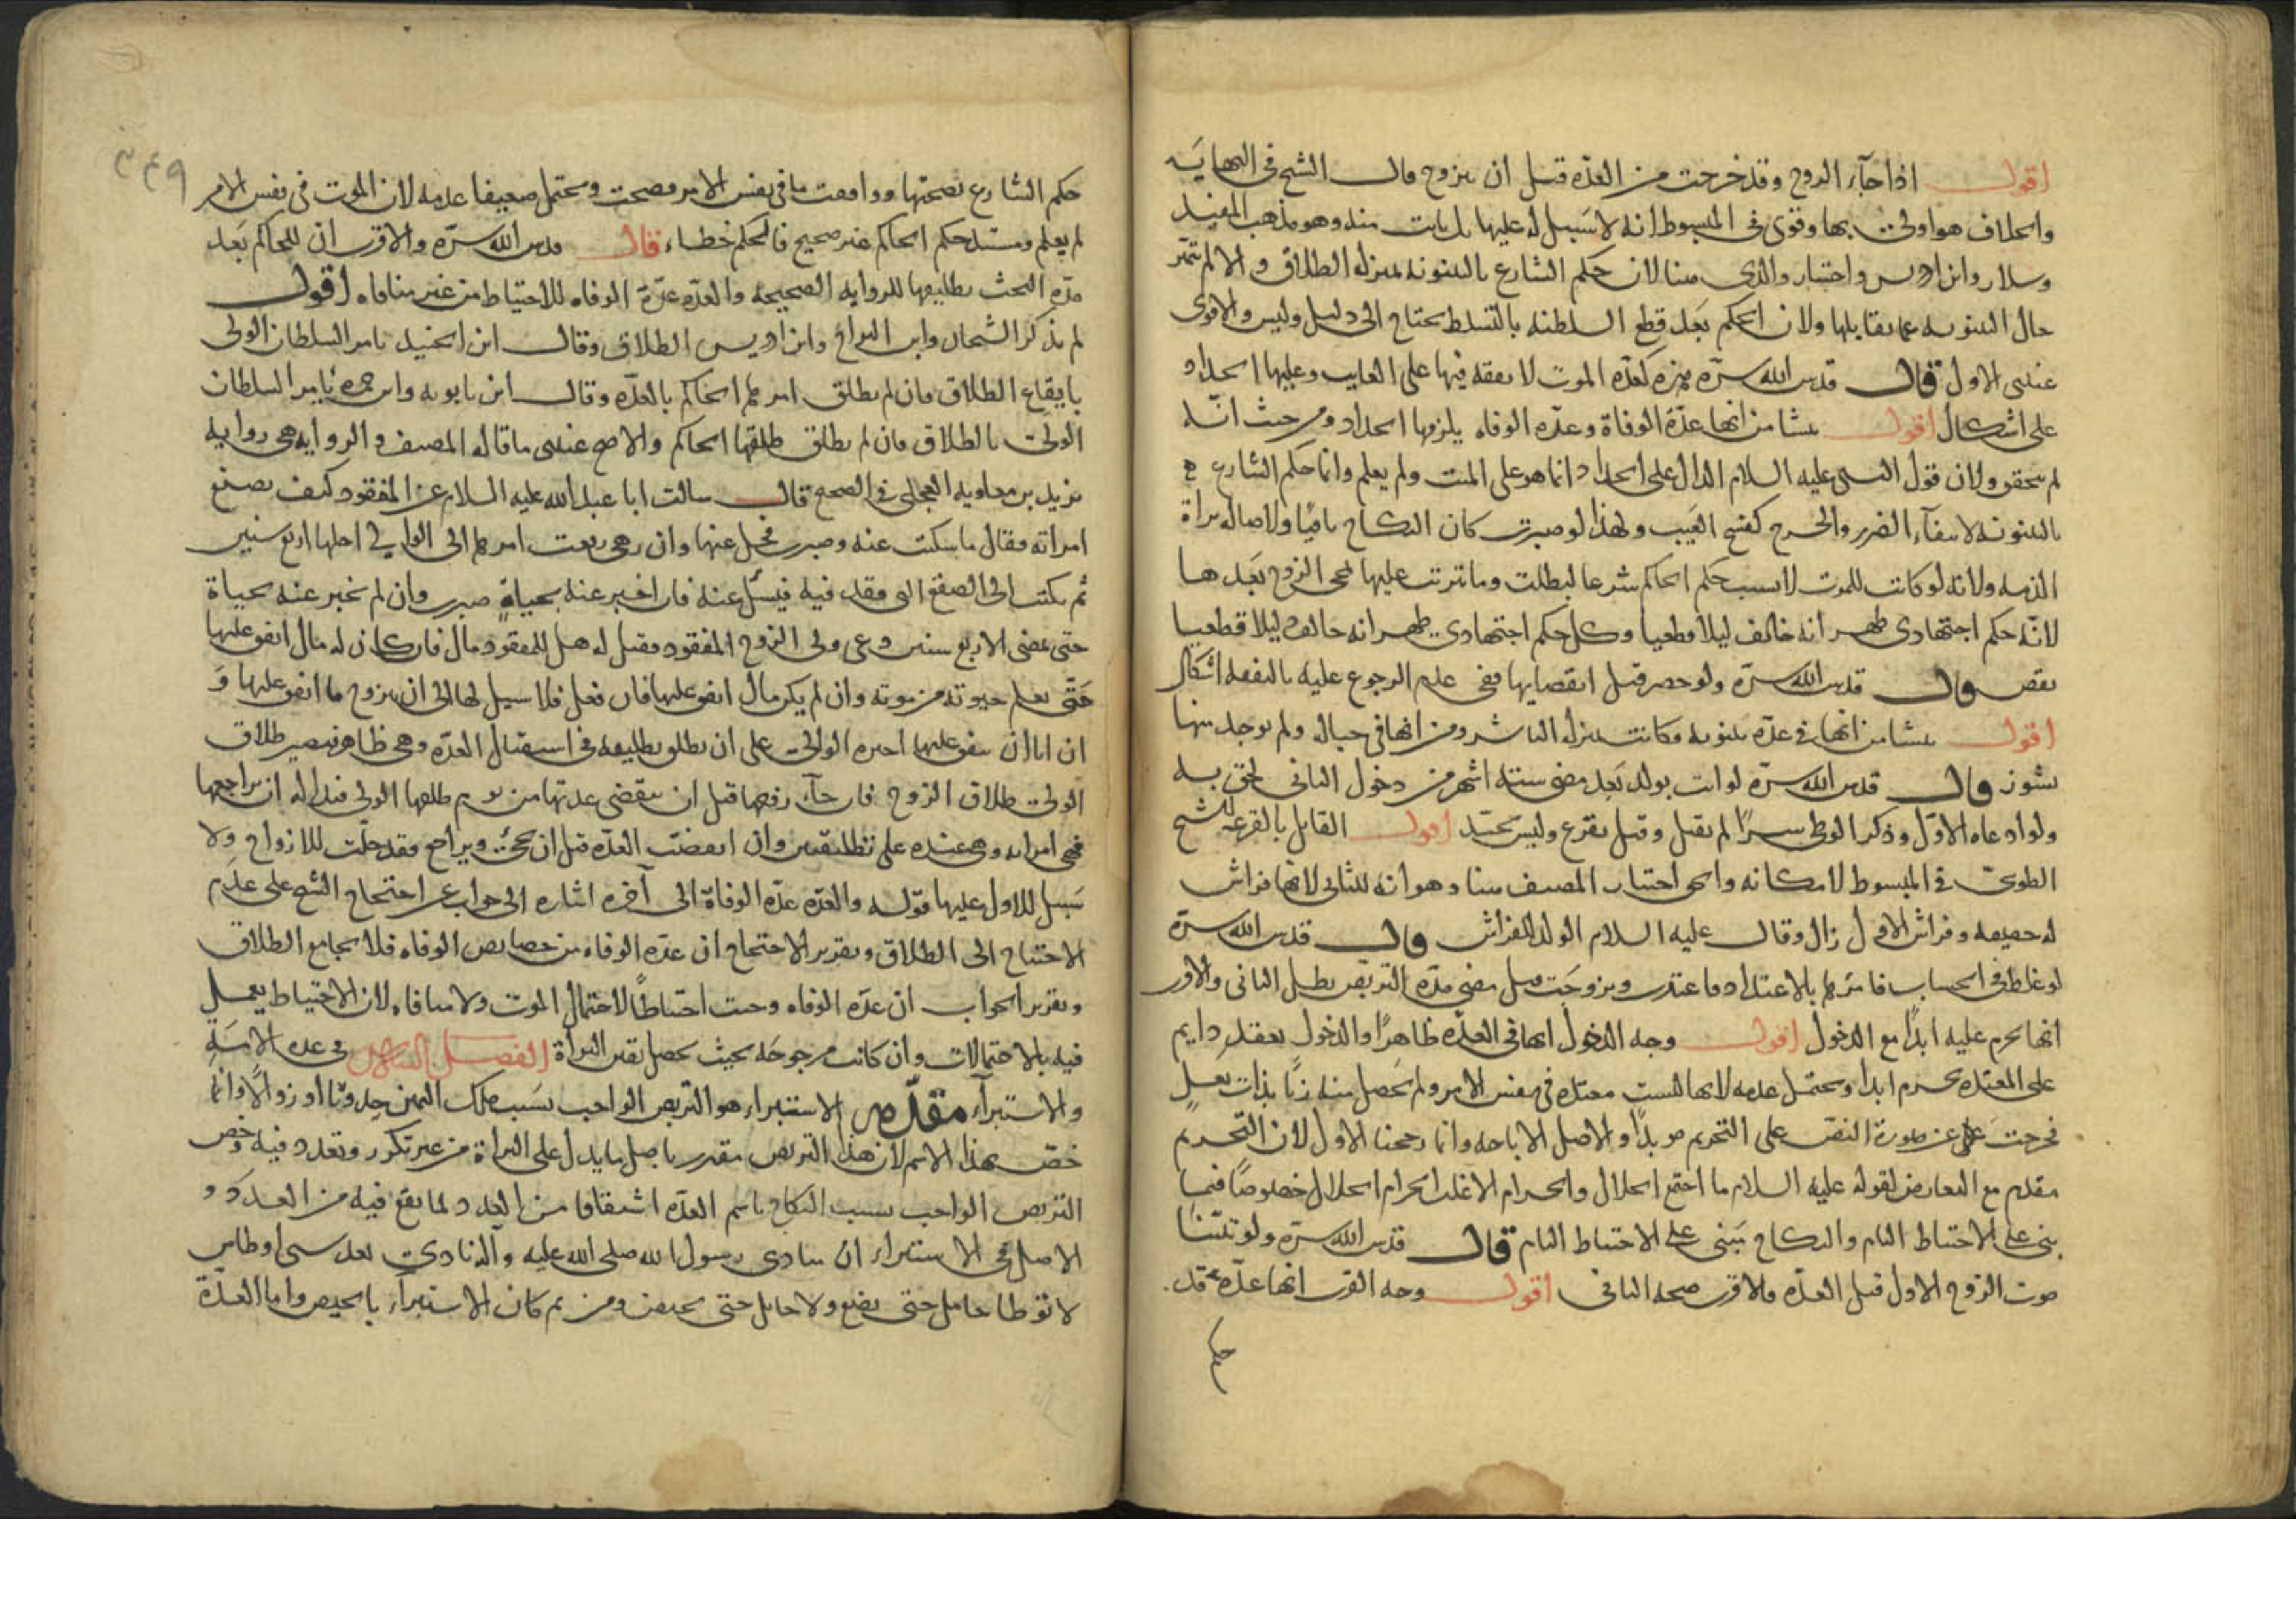 اقول اذا جاء الزوج وقد خرجت من العدة قبل ان تتزوج قال الشيخ في النهاية
والخلاف هو اولى بها وقوى في المبسوط انه لا سبيل له عليها بل بانت منه وهو مذهب المفيد
وسلار وابن ادريس واختيار والدي هنا لان حكم الشارع بالبينونة بمنزلة الطلاق والا لم تتميز
حال البينونة عما يقابلها ولان الحكم بعد قطع السلطنة بالتسلط يحتاج الى دليل وليس والاقوى
عندى الاول قال قدس الله سره هذه كعدة الموت لا نفقة فيها على الغايب وعليها الحداد
على اشكال اقول ينشا من انها عدة الوفاة وعدة الوفاه يلزمها الحداد ومن حيث انه
لم يتحقق ولان قول النبي عليه السلام الدال على الحداد انما هو على الميت ولم يعلم وانما حكم الشارع
بالبينونة لانتفاء الضرر والحرج كفسخ العيب ولهذا لو صبرت كان النكاح باقيا ولاصاله براة
الذمه ولانه لو كانت للموت لا بسبب حكم الحاكم شرعا لبطلت وما ترتب عليها لمجى الزوج بعدها
لانه حكم اجتهادى ظهر انه خالف دليلا قطعيا وكل حكم اجتهادى ظهر انه خالف دليلا قطعيا
نقض قال قدس الله سره ولو حضر قبل انقضايها ففى عدم الرجوع عليه بالنفقه اشكال
اقول ينشا من انها في عدة بينونه فكانت بمنزلة الناشز ومن انها في حباله ولم يوجد منها
نشوز قال قدس الله سره لو اتت بولد بعد مضى ستة اشهر من دخول الثانى لحق به
ولو ادعاه الاول وذكر الوطى سرا لم يقبل وقيل يقرع وليس بجيد اقول القايل بالقرعة الشيخ
الطوسى في المبسوط لامكانه والحق اختيار المصنف هنا وهو انه للثانى لانها فراش
له حقيقه وفراش الاول زال وقال عليه السلام الولد للفراش قال قدس الله سره
لو غلط في الحساب فامرها بالاعتداد فاعتدت وتزوجت قبل مضى مدة التربص بطل الثانى والاقرب
انها تحرم عليه ابدا مع الدخول اقول وجه الدخول انها في العدة ظاهرا والدخول بعقد دايم
على المعتدة يحرم ابدا ويحتمل عدمه لانها ليست معتدة في نفس الامر ولم يحصل منه زنا بذات بعل
فخرجت عن صورة النص على التحريم موبدا والاصل الاباحه وانما رجحنا الاول لان التحريم
مقدم مع التعارض لقوله عليه السلام ما اجتمع الحلال والحرام الا غلب الحرام الحلال خصوصا فيما
بنى على الاحتياط التام والنكاح يبنى على الاحتياط التام قال قدس الله سره ولو تبينا
موت الزوج الاول قبل العدة فالاقرب صحه الثانى اقول وجه القرب انها عدة قد
حكم
٣٤٩
حكم الشارع بصحتها ووافقت ما في نفس الامر فصحت ويحتمل ضعيفا عدمه لان الموت في نفس الامر
لم يعلم ومستند حكم الحاكم غير صحيح فالحكم خطاء قال قدس الله سره والاقرب ان للحاكم بعد
مدة البحث تطليقها للروايه الصحيحه والعدة عدة الوفاه للاحتياط من غير منافاه اقول
لم يذكر الشيخان وابن البراج وابن ادريس الطلاق وقال ابن الجنيد يامر السلطان الولى
بايقاع الطلاق فان لم يطلق امرها الحاكم بالعدة وقال ابن بابويه وابن حمزه يامر السلطان
الولى بالطلاق فان لم يطلق طلقها الحاكم والاصح عندى ما قاله المصنف والروايه هى روايه
بريد بن معاويه العجلى في الصحيح قال سالت ابا عبد الله عليه السلام عن المفقود كيف يصنع
امراته فقال ما سكتت عنه وصبرت فخل عنها وان هى رفعت امرها الى الوالى اجلها اربع سنين
ثم يكتب الى الصقع الذى فقد فيه فيسئل عنه فان اخبر عنه بحياة صبرت وان لم يخبر عنه بحياة
حتى تمضى الاربع سنين دعى ولى الزوج المفقود فقيل له هل للمفقود مال فان كان له مال انفق عليها
حتى يعلم حيوته من موته وان لم يكن مال انفق عليها فان فعل فلا سبيل لها الى ان تتزوج ما انفق عليها و
ان ابى ان ينفق عليها اجبره الوالى على ان يطلق تطليقه في استقبال العدة وهى طاهر فيصير طلاق
الولى طلاق الزوج فان جاء زوجها قبل ان تنقضى عدتها من يوم طلقها الولى فبدا له ان يراجعها
فهى امراته وهى عنده على تطليقتين وان انقضت العدة قبل ان يجئ ويراجع فقد حلت للازواج ولا
سبيل للاول عليها قوله والعدة عدة الوفاة الى آخره اشاره الى جواب عن احتجاج الشيخ على عدم
الاحتياج الى الطلاق وتقرير الاحتجاج ان عدة الوفاه من خصايص الوفاه فلا يجامع الطلاق
وتقرير الجواب ان عدة الوفاه وجبت احتياطا لاحتمال الموت ولا منافاه لان الاحتياط يعمل
فيه بالاحتمالات وان كانت مرجوحة بحيث يحصل يقين البراة الفصل السادس في عدة الامة
والاستبراء مقدمه الاستبراء هو التربص الواجب بسبب ملك اليمين حدوثا او زوالا وانما
خص بهذا الاسم لان هذا التربص مقدر باصل ما يدل على البراة من غير تكرر وتعدد فيه وخص
التربص الواجب بسبب النكاح باسم العدة اشتقاقا من العدد لما يقع فيه من العدد و
الاصل في الاستبراء ان منادى رسول الله صلى الله عليه وآله نادى بعد سبى اوطاس
لا توطا حامل حتى تضع ولا حايل حتى تحيض ومن ثم كان الاستبراء بالحيض واما العدة